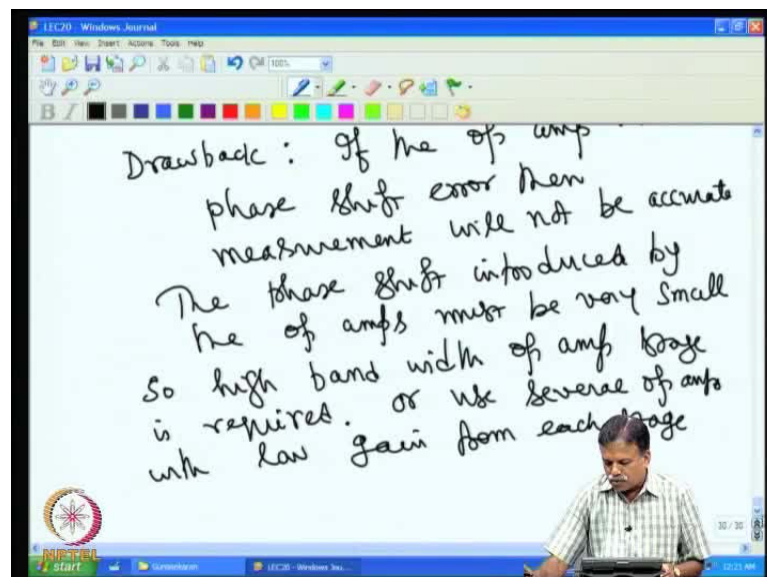 LEC20 - Windows Journal
File Edit View Insert Actions Tools Help
100%
B I
Drawback : If the op amp
phase shift error then
measurement will not be accurate
The phase shift introduced by
the op amps must be very small
So high band width op amp stage
is required. or use several op amps
with low gain from each stage
30 / 30
NPTEL
start
LEC20 - Windows Jou...
12:21 AM